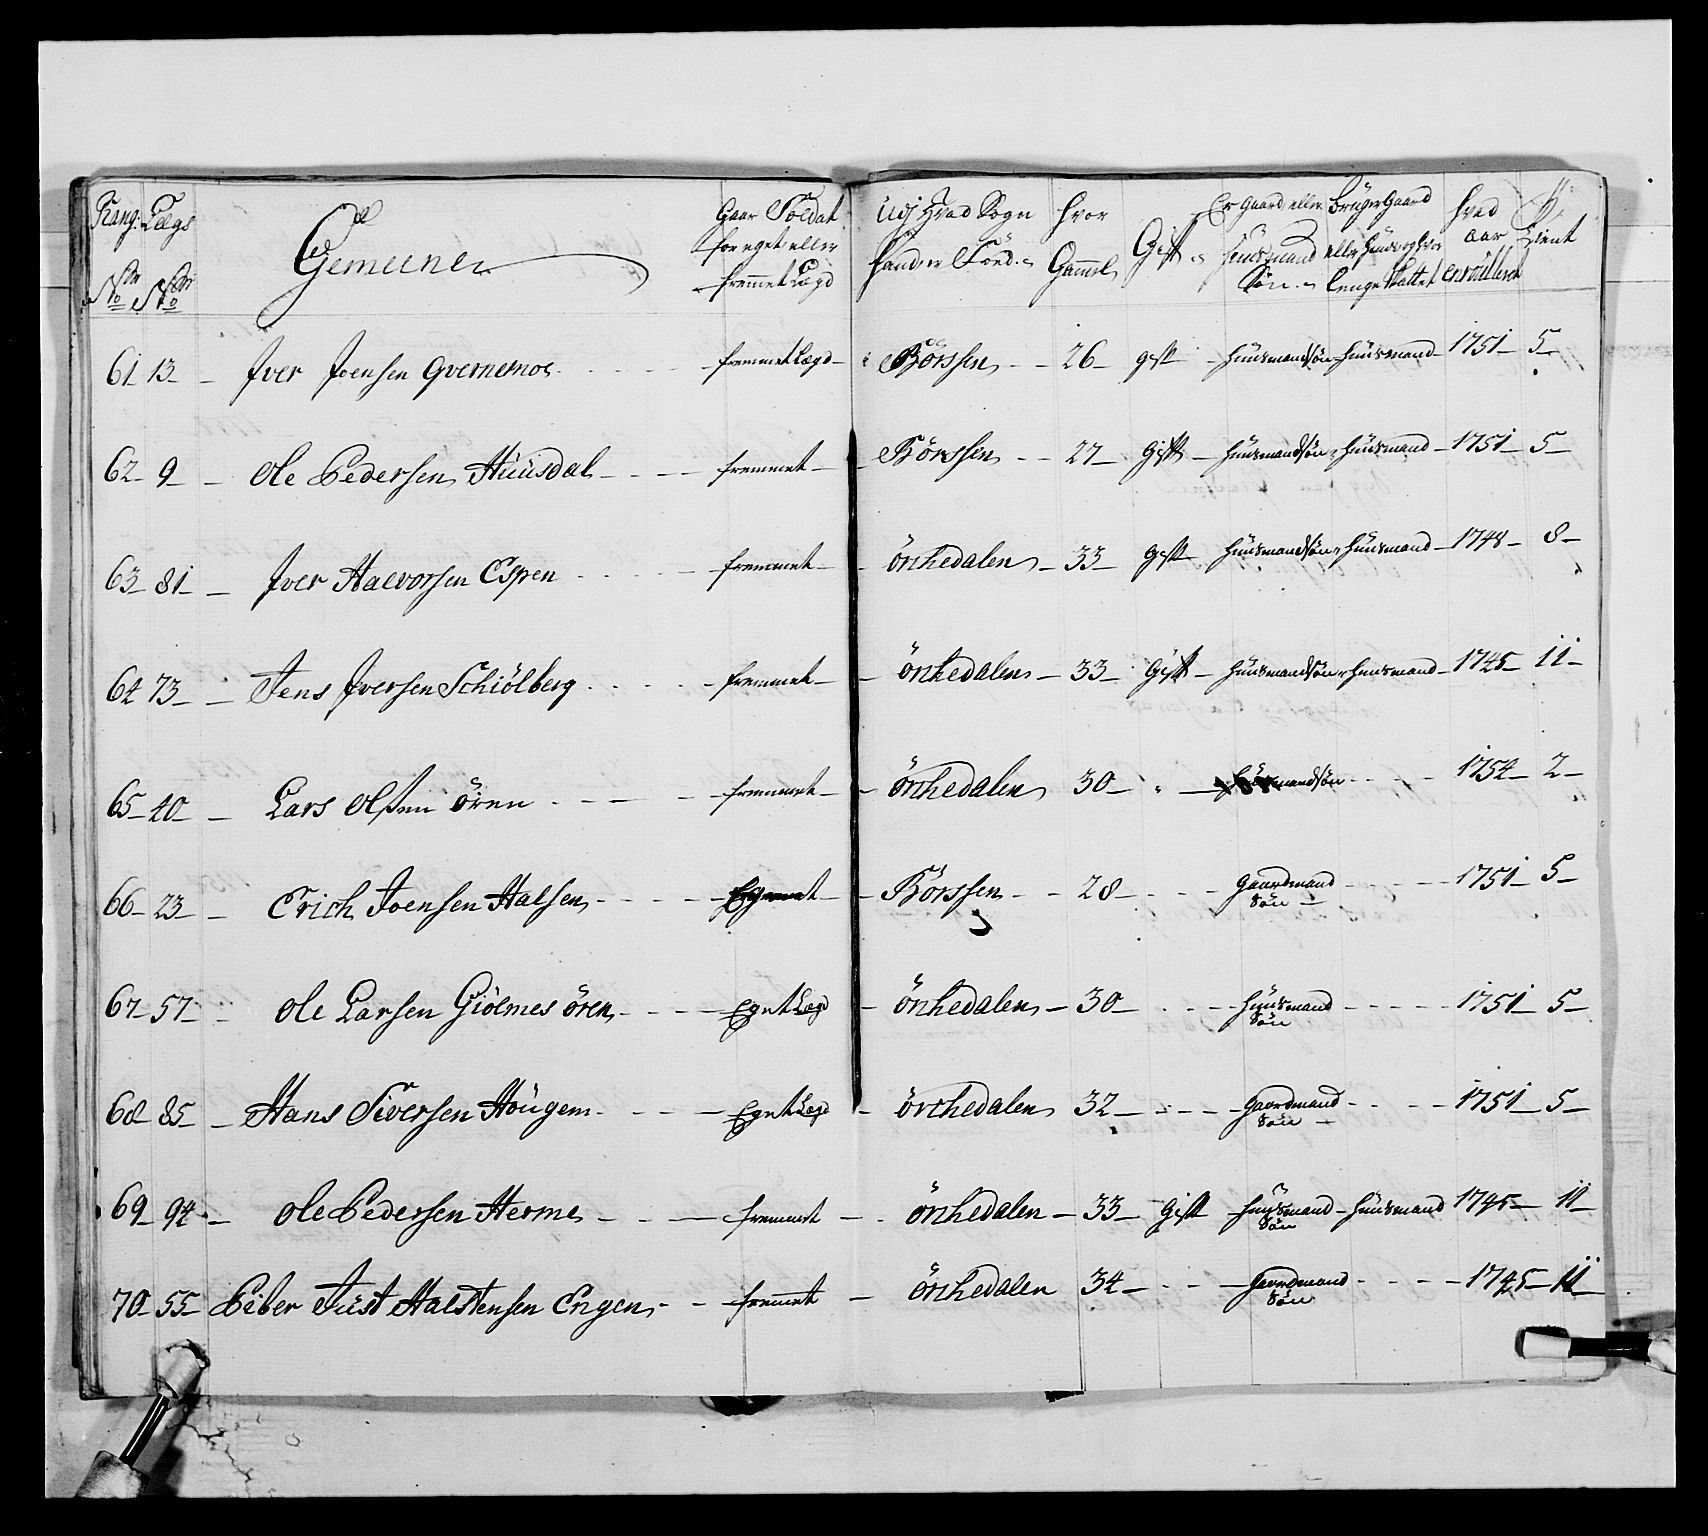 Rang Lægs Gemeener Gaar Soldat for eget eller fremmet Lægd Udj Hvad Sogn hand er Föed hvor Gammel Gift Er Gaard eller Huusmand Sön Bruger Gaard eller hvad Aar enroullerit Tient
No No
61 13 Jver Joensen Qvernemoe fremmet Lægd Börssen 26 gift huusmandsön huusmand 1751 5
62 9 Ole Pedersen Huusdal fremmet Börssen 27 Gift huusmandsön huusmand 1751 5
63 81 Jver Halvorsen Espen fremmet örchedalen 33 gift huusmandsön huusmand 1748 8
64 73 Jens Jversen Schiölberg fremmet örchedalen 33 Gift huusmandsön huusmand 1745 11
65 40 Lars Olsen ören fremmet örchedalen 30 mandsön 1754 2
66 23 Erich Joensen Halsen Börssen 28 Gaardmand Sön 1751 5
67 57 Ole Larsen Giölmes ören Eget Lægd örchedalen 30 huusmand Sön 1751 5
68 85 Hans Siversen Hougen Eget Lægd örchedalen 32 Gaardmand Sön 1751 5
69 94 Ole Pedersen Herme fremmet örchedalen 33 Gift huusmand Sön huusmand 1745 11
70 55 Peder Just Halstensen Engen fremmet örchedalen 34 Gaardmand Sön 1745 11